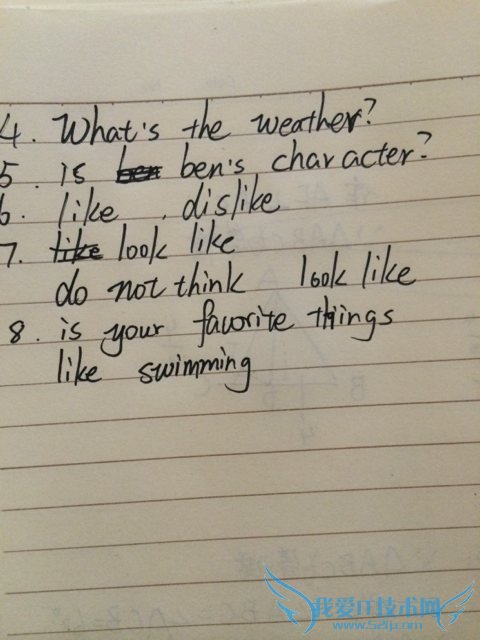 4. What's the weather?
5. is ben ben's character?
6. like . dislike
7. like look like
do not think look like
8. is your favorite things
like swimming
我爱IT技术网
www.52ij.com